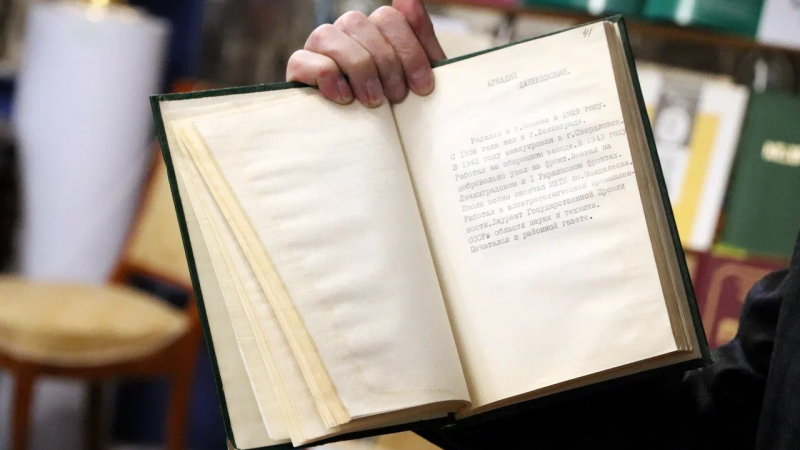 41
АРКАДИЙ
Родился в г. в 1923 году.
С 1936 года жил в г.Ленинграде.
В 1942 году эвакуирован в г.Свердловск.
Работал на оборонном заводе. В 1943 году
добровольно ушел на фронт. Воевал на
Ленинградском и I Украинском фронтах.
После войны окончил МХТИ им.Менделеева.
Работал в электротехнической промышлен-
ности. Лауреат Государственной Премии
СССР в области науки и техники.
Печатался в районной газете.